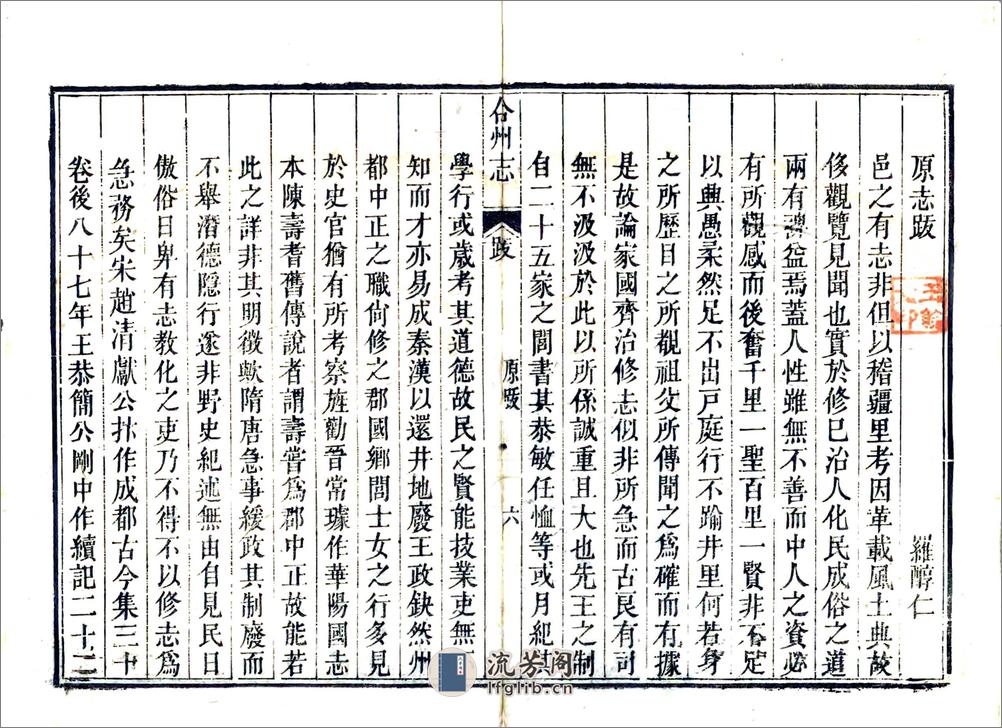 原志䟦　羅醇仁
邑之有志非但以稽疆里考因革載風土典故
侈觀覽見聞也實於修己治人化民成俗之道
兩有裨益焉蓋人性雖無不善而中人之資必
有所觀感而後奮千里一聖百里一賢非不足
以興愚柔然足不出戸庭行不踰井里何若身
之所歷目之所覩祖父所傳聞之爲確而有據
是故論家國齊治修志似非所急而古良有司
無不汲汲於此以所係誠重且大也先王之制
自二十五家之閭書其恭敏任恤等或月紀其
合州志　䟦　原䟦　六
學行或歲考其道德故民之賢能技業吏無
知而才亦易成秦漢以還井地廢王政缺然州
都中正之職尙修之郡國鄉閭士女之行多見
於史官猶有所考察旌勸晉常璩作華陽國志
本陳壽耆舊傳說者謂壽嘗爲郡中正故能若
此之詳非其明徵歟隋唐急事緩政其制廢而
不舉潛德隱行遂非野史紀述無由自見民日
傲俗日卑有志教化之吏乃不得不以修志爲
急務矣宋趙清獻公抃作成都古今集三十
卷後八十七年王恭簡公剛中作續記二十二
流芳閣
lfglib.cn